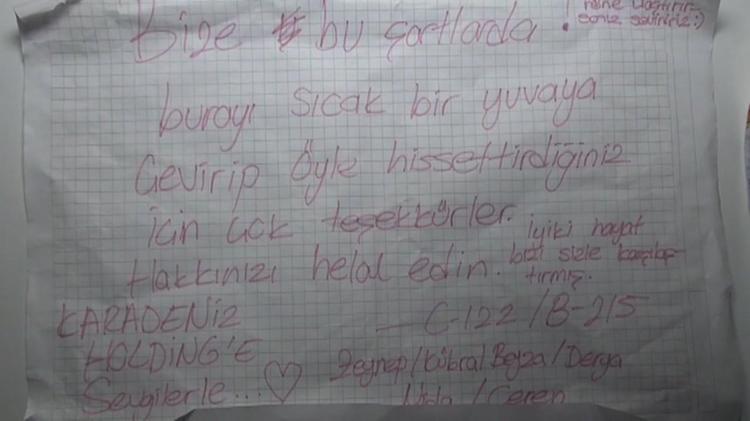 Bize bu şartlarda !
seviniriz :)
burayı sıcak bir yuvaya
Çevirip öyle hissettirdiğiniz
için çok teşekkürler. iyiki hayat
Hakkınızı helal edin. bizi sizle karşılaş
tırmış.
KARADENİZ
HOLDİNG'E
Sevgilerle...♡
- C-122 / B-215
Zeynep / Kübra / Beyza / Derya
/ Ceren